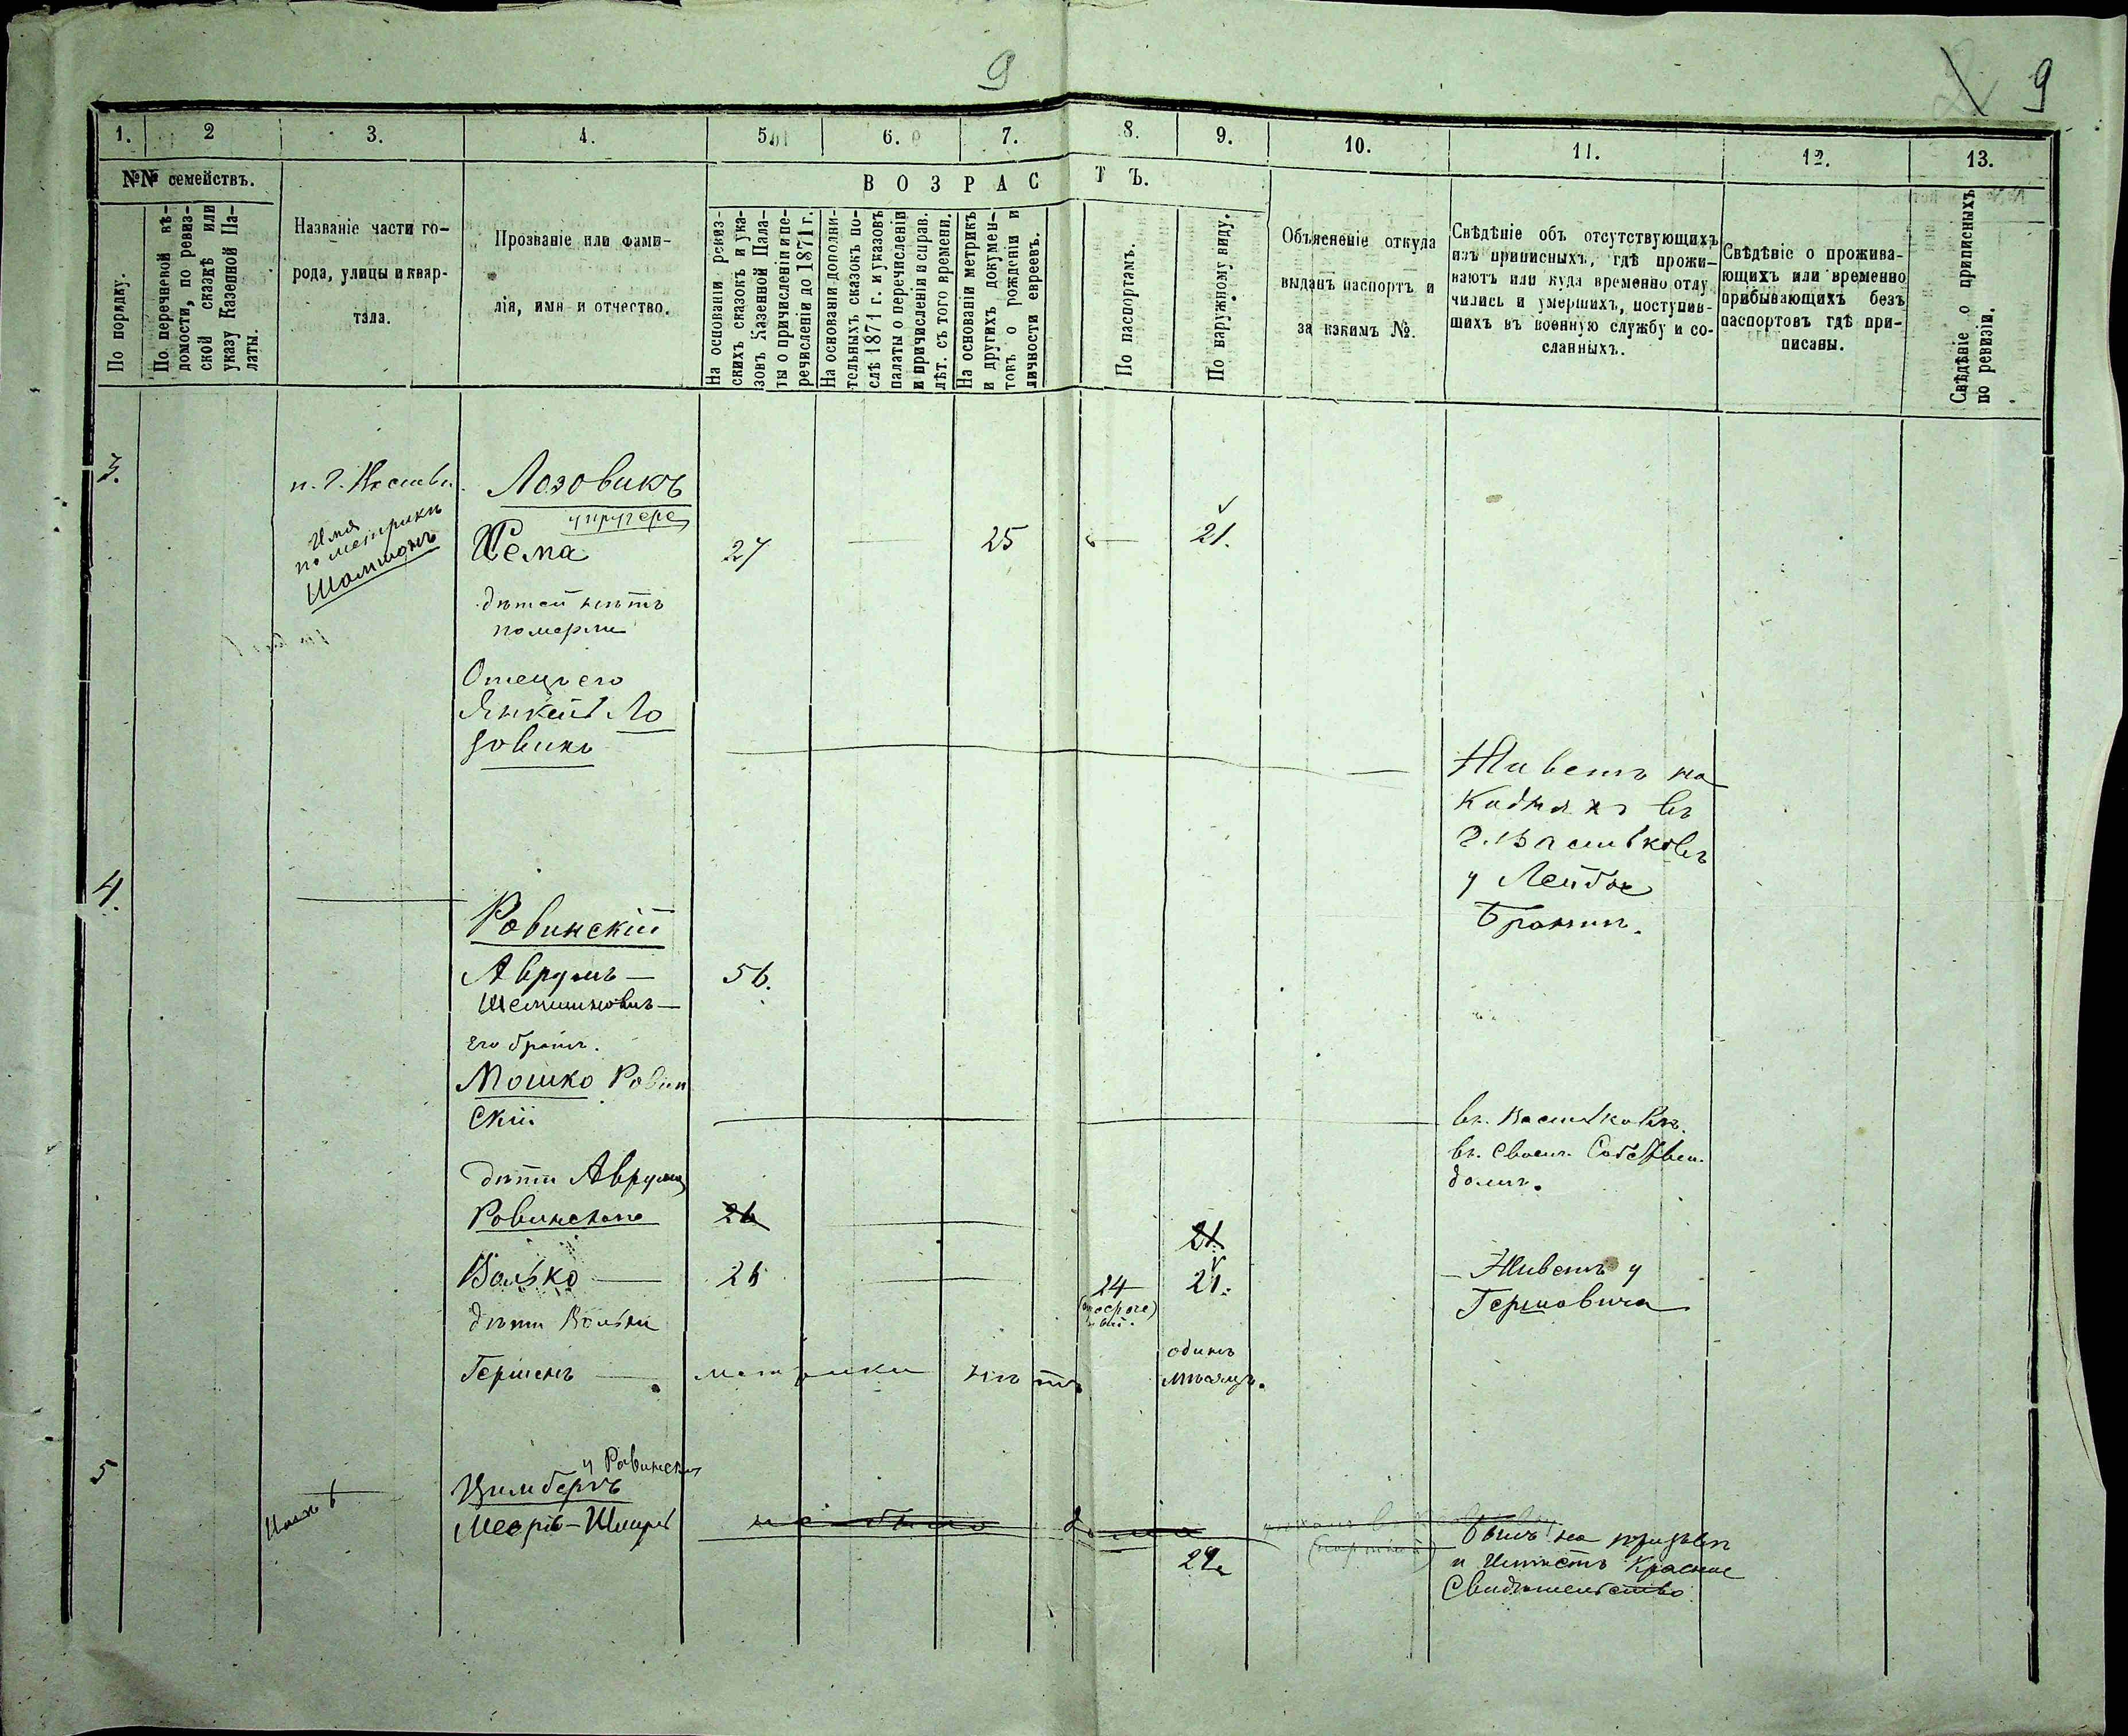 9
9
1. 2 3. 4. 5. 6. 7. 8. 9. 10. 11. 12. 13.
№№ семействъ.
По порядку.
По перечневой вѣ-
домости, по ревиз-
ской сказкѣ или
указу Казенной Па-
латы.
Названіе части го-
рода, улицы и квар-
тала.
Прозваніе или фами-
лія, имя и отчество.
ВОЗРАСТЪ.
На основаніи ревиз-
скихъ сказокъ и ука-
зовъ Казенной Пала-
ты о причисленіи и пе-
речисленіи до 1871 г.
На основаніи дополни-
тельныхъ сказокъ по-
слѣ 1871 г. и указовъ
палаты о перечисленіи
и причисленіи и справ.
лѣт. съ того времени.
На основаніи метрикъ
и другихъ докумен-
товъ о рожденіи и
личности евреевъ.
По паспортамъ.
По наружному виду.
Объясненіе откуда
выданъ паспортъ и
за какимъ №.
Свѣдѣніе объ отсутствующихъ
изъ приписныхъ, гдѣ прожи-
ваютъ или куда временно отлу
чились и умершихъ, поступив-
шихъ въ военную службу и со-
сланныхъ.
Свѣдѣніе о прожива-
ющихъ или временно
прибывающихъ безъ
паспортовъ гдѣ при-
писаны.
Свѣдѣніе о приписныхъ
по ревизіи.
3.
Лозовикъ
Имя
по метрикѣ
Хема 27 — 25 — 21.
дѣтей нѣтъ
померли
Отецъ его
Янкель Ло
зовикъ
Живетъ на
въ
г. Васильковѣ
у Лейбы
4.
Ровинскій
Аврумъ — 56.
его братъ.
Мошко Ровин
скій
въ Васильковѣ.
въ своемъ Собствен.
домѣ.
дѣти Аврума
Ровинскаго 26
21.
Волько — 26 — 24 21.
— Живетъ у
Гершовича
дѣти Вольки
Гершенъ — метрики нѣтъ одинъ
мѣсяцъ.
5
у Ровинскаго
Цимбергъ
не было дома
былъ на призывѣ
24.
и имѣетъ Красное
Свидѣтельство